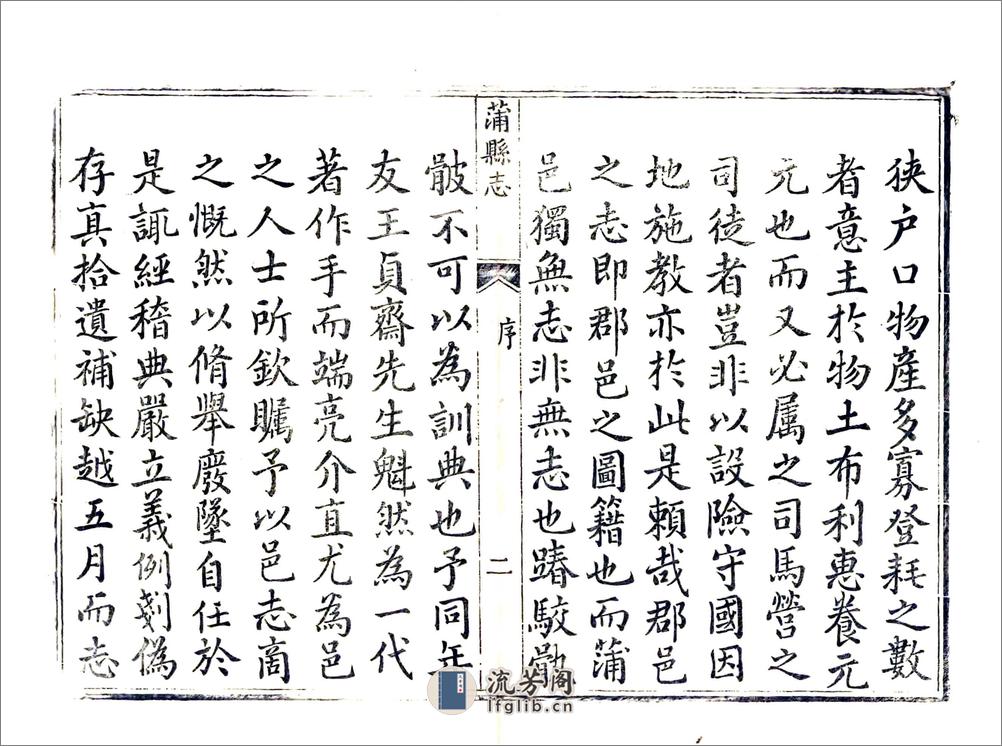 狹户口物產多寡登耗之數
者意主於物土布利惠養元
元也而又必属之司馬營之
司徒者豈非以設險守國因
地施教亦於此是頼哉郡邑
之志即郡邑之圖籍也而蒲
邑獨無志非無志也踳駁骩
蒲縣志
序
二
骳不可以為訓典也予同年
友王貞齋先生魁然為一代
著作手而端亮介直尤為邑
之人士所欽矚予以邑志商
之慨然以脩舉廢墜自任於
是諏經稽典嚴立義例剗偽
存真拾遺補缺越五月而志
流芳阁
lfglib.cn